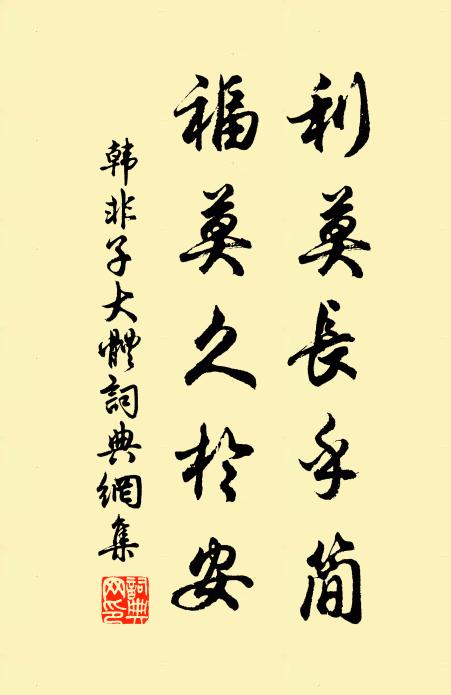 利莫長乎簡
福莫久於安
韩非子大體詞典網集
詞典網印